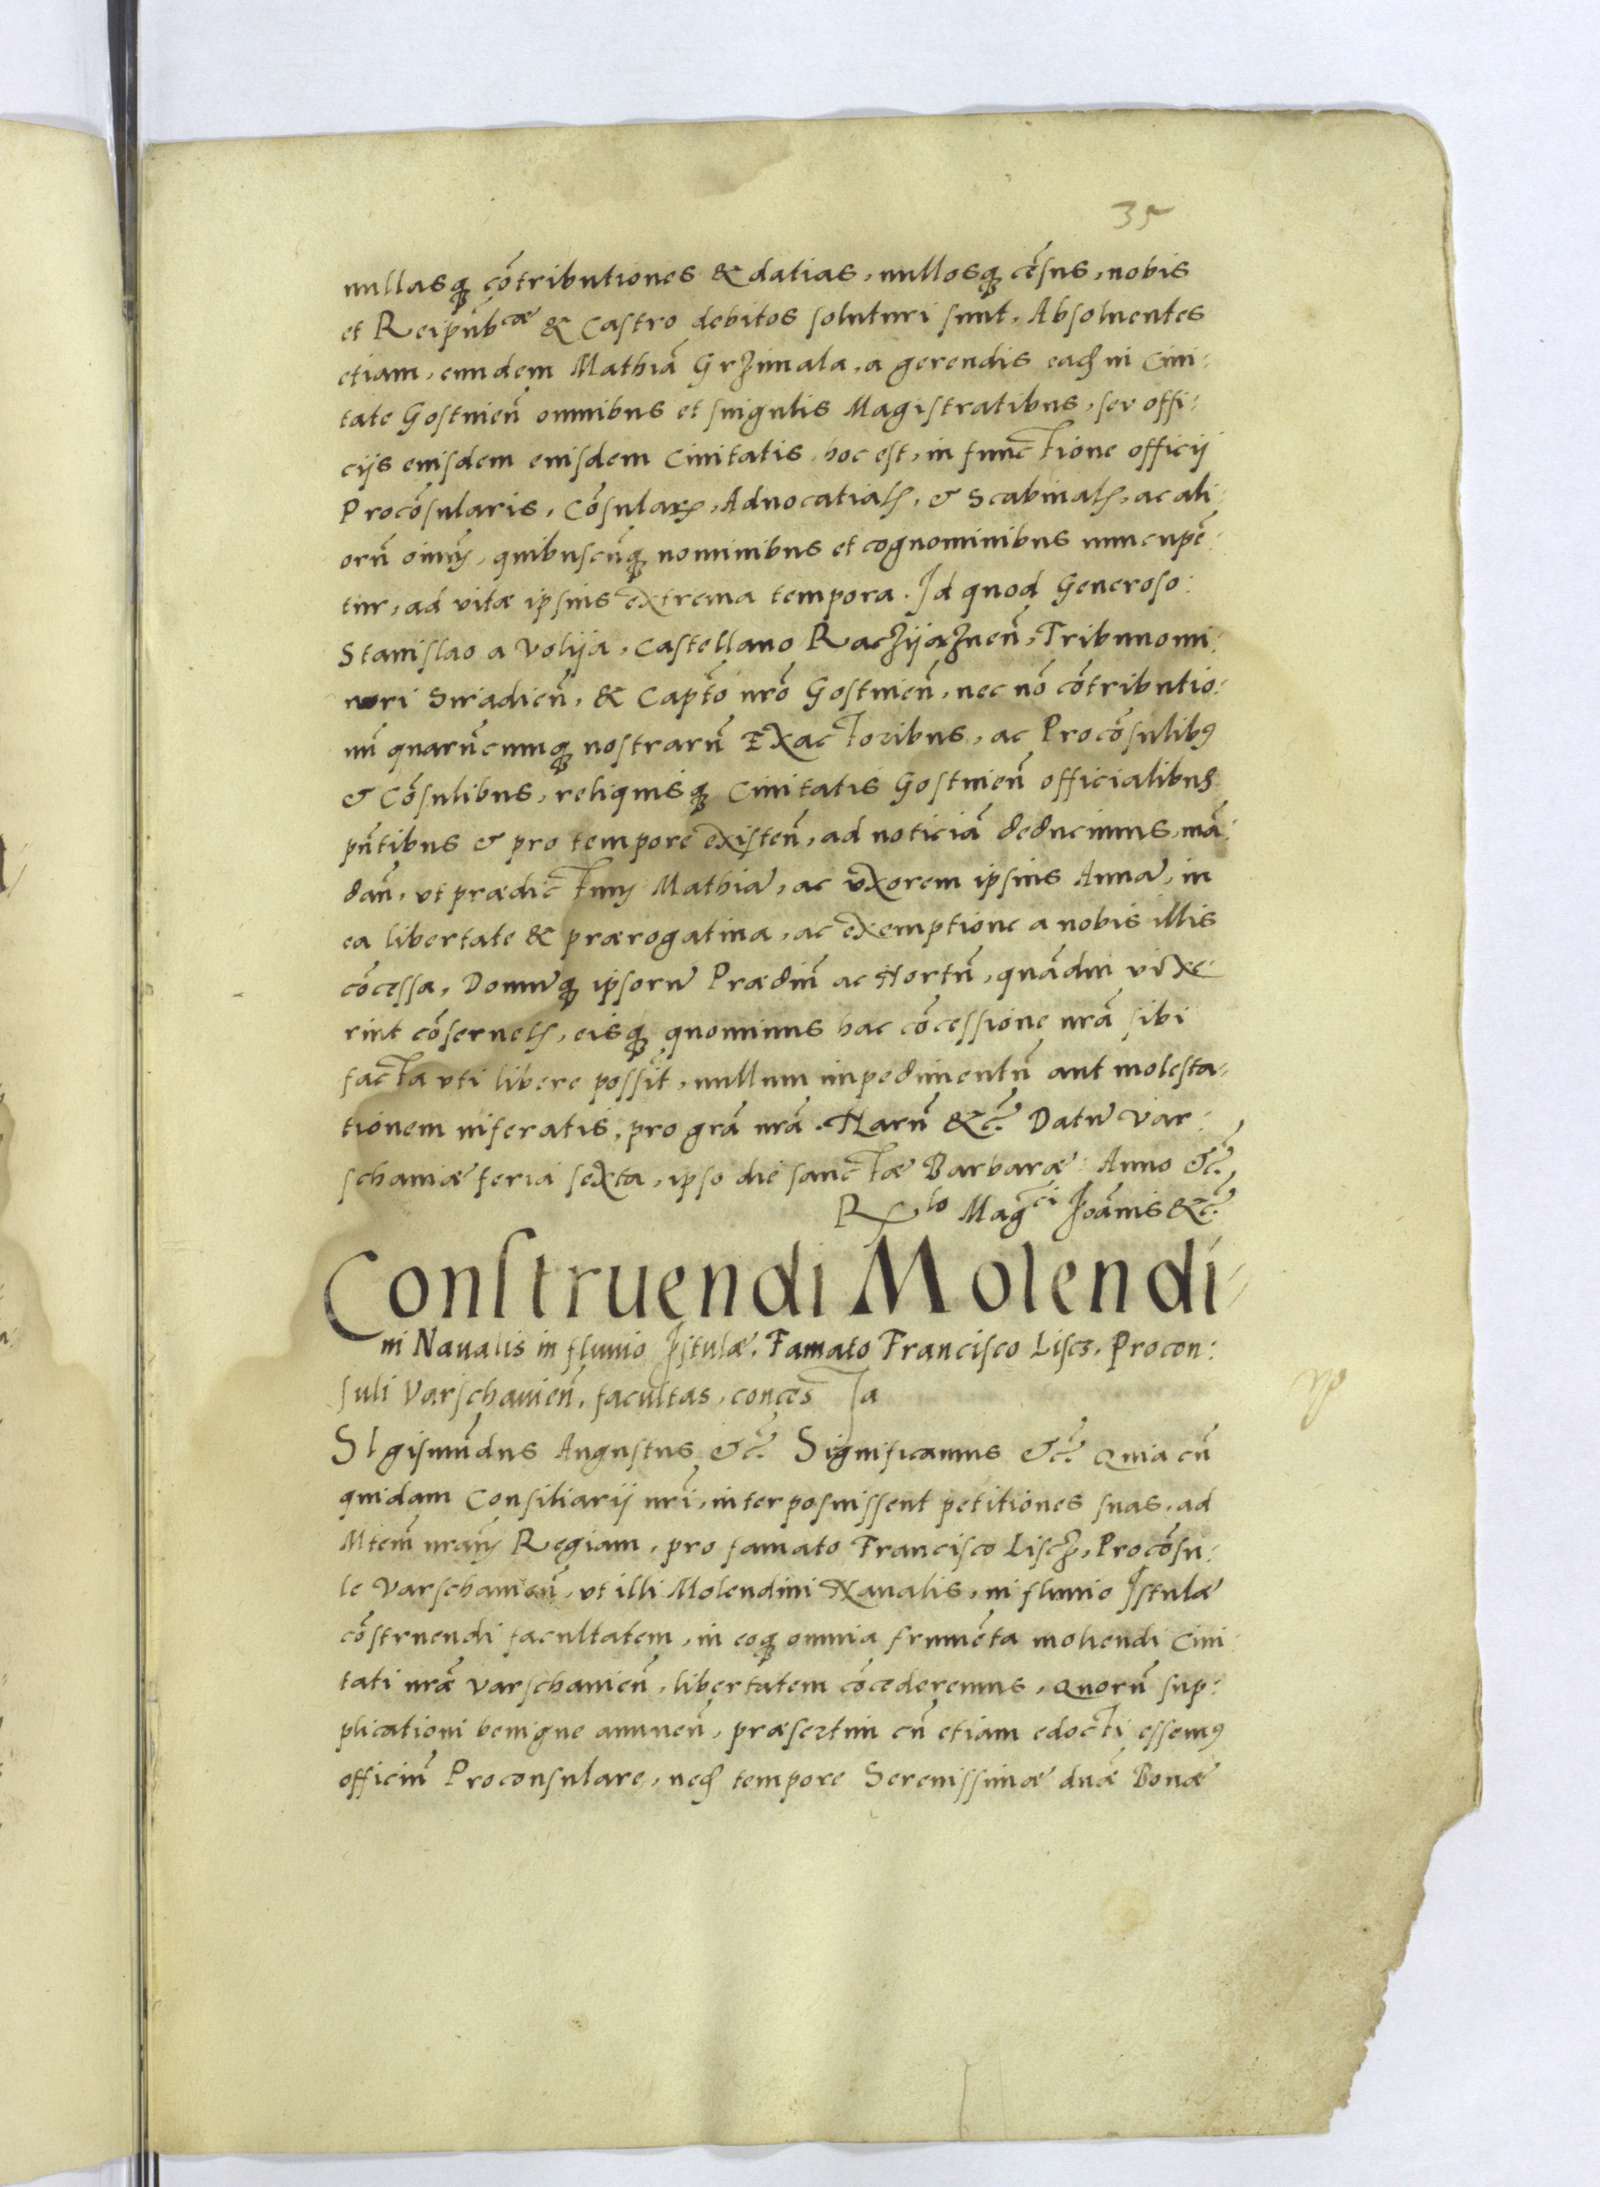 35
nullasq3 cōtributiones & datias, nullosq3 cēsus, nobis
et Reipub̄cæ & Castro debitos soluturi sunt. Absoluentes
etiam, eundem Mathiā Grzimala, a gerendis ead3 in Ciui:
tate Gostinieñ omnibus et singulis Magistratibus, seu offi:
ciis eiusdem eiusdem Ciuitatis, hoc est, in functione officij
Procōsularis, Cōsularis, Aduocatial3, & Scabinal3, ac ali:
orū oiniū, quibuscūq3 nominibus et cognominibus nuncupē:
tur, ad vitæ ipsius extrema tempora. Id quod Generoso:
Stanislao a Volija, Castellano Raczijazneñ, Tribunomi:
nori Siradieñ, & Captō nrō Gostinieñ, nec nō cōtributio:
nū quarūcunq3 nostrarū Exactoribus, ac Procōsulib9
& Cōsulibus, reliquisq3 Ciuitatis Gostinieñ officialibus
pñtibus & pro tempore existeñ, ad noticiā deducimus, mā:
dañ, vt prædictum Mathiā, ac vxorem ipsius Annā, in
ea libertate & prærogatiua, ac exemptione a nobis illis
cōcessa, Domūq3 ipsorū Prædiū ac Hortū, quādiu vixe:
rint cōseruet3, eisq3 quominus hac cōcessione nrā sibi
facta vti libere possīt, nullum impedimentū aut molesta:
tionem inferatis, pro grā nrā. Harū &c̄. Datū Var:
schauiæ feria sexta, ipso die sanctæ Barbaræ: Anno &c̄.
Rlo Maḡci Joānis &c̄.
Construendi Molendi:
ni Naualis in fluuio Istulæ, Famato Francisco Liscz, Procon:
suli Varschauieñ, facultas, concessa
SIgismūdus Augustus &c̄. Significamus &c̄. Quia cū
quidam Consiliarij nrī, interposuissent petitiones suas, ad
Mtem̄ nram̄ Regiam, pro famato Francisco Liscz, Procōsu:
le Varschauieñ, vt illi Molendini Naualis, in fluuio Istulæ
cōstruendi facultatem, in eoq3 omnia frumēta molendi Ciui:
tati nrǣ Varschauieñ, libertatem cōcederemus, Quorū sup:
plicationi benigne annueñ, præsertim cū etiam edocti essem9
officiū Proconsulare, ned3 tempore Serenissimæ dnǣ Bonæ